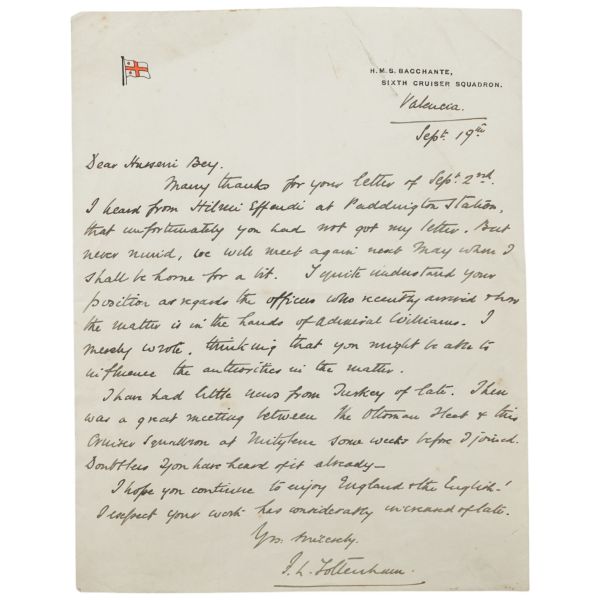 H.M.S. BACCHANTE,
SIXTH CRUISER SQUADRON.
Valencia.
Sept. 19th
Dear Husseni Bey.
Many thanks for your letter of Sept. 2nd.
I heard from Hilmi Effendi at Paddington Station,
that unfortunately you had not got my letter. But
never mind, we will meet again next May when I
shall be home for a bit. I quite understand your
position as regards the officers who recently arrived & how
the matter is in the hands of Admiral Williams. I
merely wrote, thinking that you might be able to
influence the authorities in the matter.
I have had little news from Turkey of late. There
was a great meeting between the Ottoman Fleet & this
Cruiser Squadron at Mitylene some weeks before I joined.
Doubtless you have heard of it already—
I hope you continue to enjoy England & the English!
I expect your work has considerably increased of late.
Yrs. sincerely.
F. L. Tottenham.